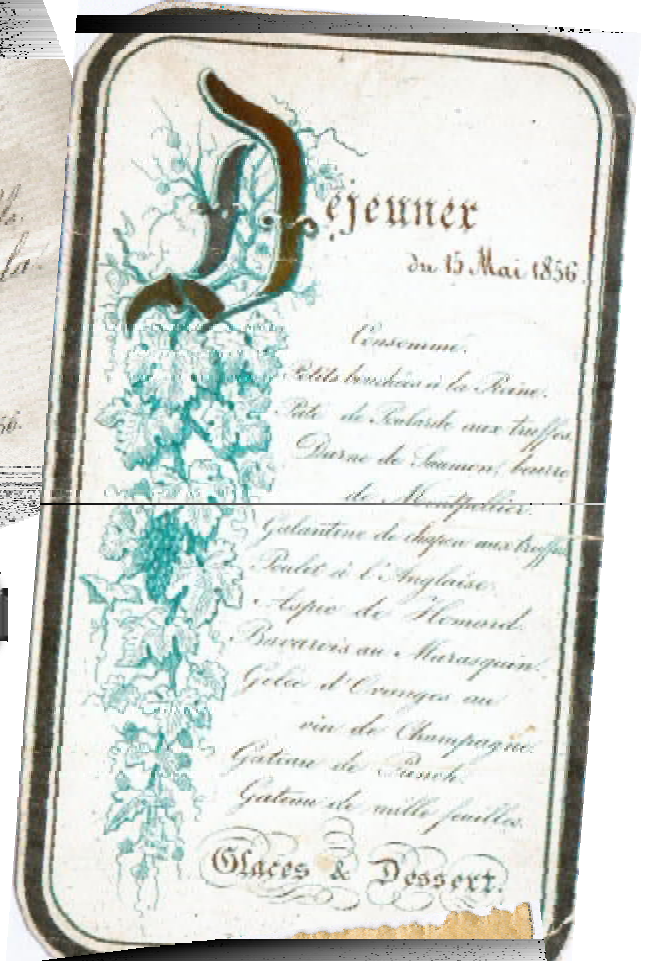 Déjeuner
du 15 Mai 1856.
Consommé.
Petits bouchées à la Reine.
Pâté de Poularde aux truffes.
Darne de Saumon, beurre
de Montpellier.
Galantine de chapon aux truffes
Poulet à l'Anglaise.
Aspic de Homard.
Bavarois au Marasquin.
Gelée d'Oranges au
vin de Champagne.
Gateau de Punch.
Gateau de mille feuilles.
Glaces & Dessert.
la.
56.